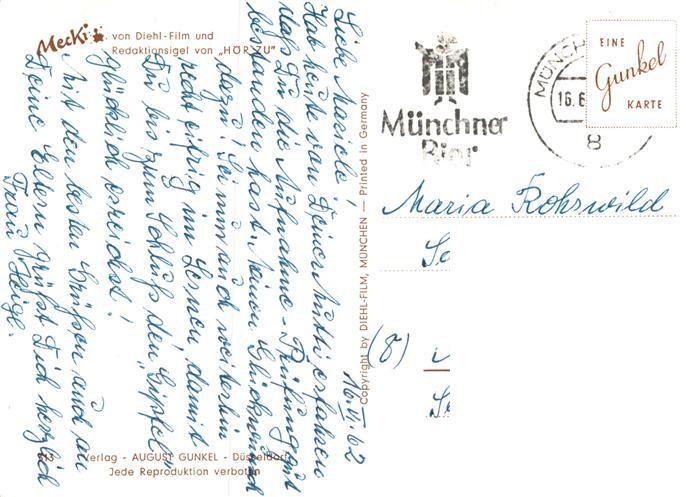 Mecki
von Diehl-Film und
Redaktionsigel von „HÖR ZU"
16.VI.62
Liebe Mariele!
Hab heute von Deiner Mutti erfahren
daß Du die Aufnahme-Prüfung gut
bestanden hast. Meinen Glückwunsch
dazu! Sei nun auch weiterhin
recht eifrig im Lernen, damit
Du bis zum Schluß den „Gipfel"
glücklich erreichst!
Mit den besten Grüßen auch an
Deine Eltern grüßt Dich herzlich
Frau Heigl.
113 Verlag - AUGUST GUNKEL - Düsseldorf
Jede Reproduktion verboten
Copyright by DIEHL-FILM, MÜNCHEN — Printed in Germany
Münchner
Bier
MÜNCH
16.6
8
EINE
Gunkel
KARTE
Maria Rohswild
(8)